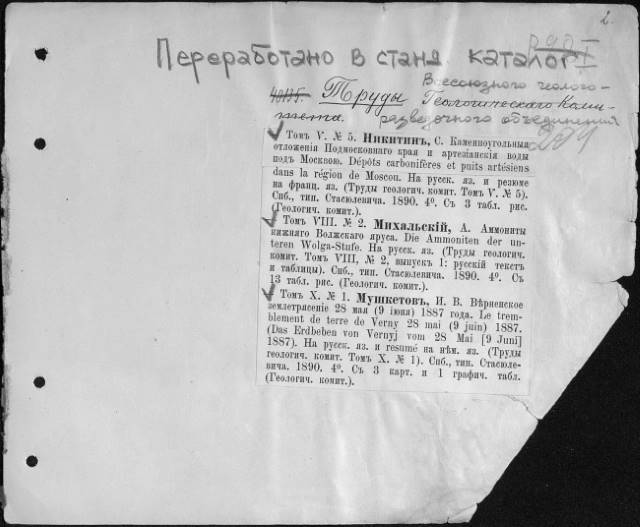 2.
Переработано в станд. каталог I
Всесоюзного геолого-
40135. Труды Геологическаго Коми-
тета. разведочного объединения
Томъ V. № 5. Никитинъ, С. Каменноугольныя
отложенія Подмосковнаго края и артезіанскія воды
подъ Москвою. Dépôts carbonifères et puits artésiens
dans la région de Moscou. На русск. яз. и резюме
на франц. яз. (Труды геологич. комит. Томъ V. № 5).
Спб., тип. Стасюлевича. 1890. 4⁰. Съ 3 табл. рис.
(Геологич. комит.).
Томъ VIII. № 2. Михальскій, А. Аммониты
нижняго Волжскаго яруса. Die Ammoniten der un-
teren Wolga-Stufe. На русск. яз. (Труды геологич.
комит. Томъ VIII, № 2, выпускъ 1: русскій текстъ
и таблицы). Спб., тип. Стасюлевича. 1890. 4⁰. Съ
13 табл. рис. (Геологич. комит.).
Томъ X. № 1. Мушкетовъ, И. В. Вѣрненское
землетрясеніе 28 мая (9 іюня) 1887 года. Le trem-
blement de terre de Verny 28 mai (9 juin) 1887.
(Das Erdbeben von Vernyj vom 28 Mai [9 Juni]
1887). На русск. яз. и resumé на нѣм. яз. (Труды
геологич. комит. Томъ X. № 1). Спб., тип. Стасюле-
вича. 1890. 4⁰. Съ 3 карт. и 1 графич. табл.
(Геологич. комит.).